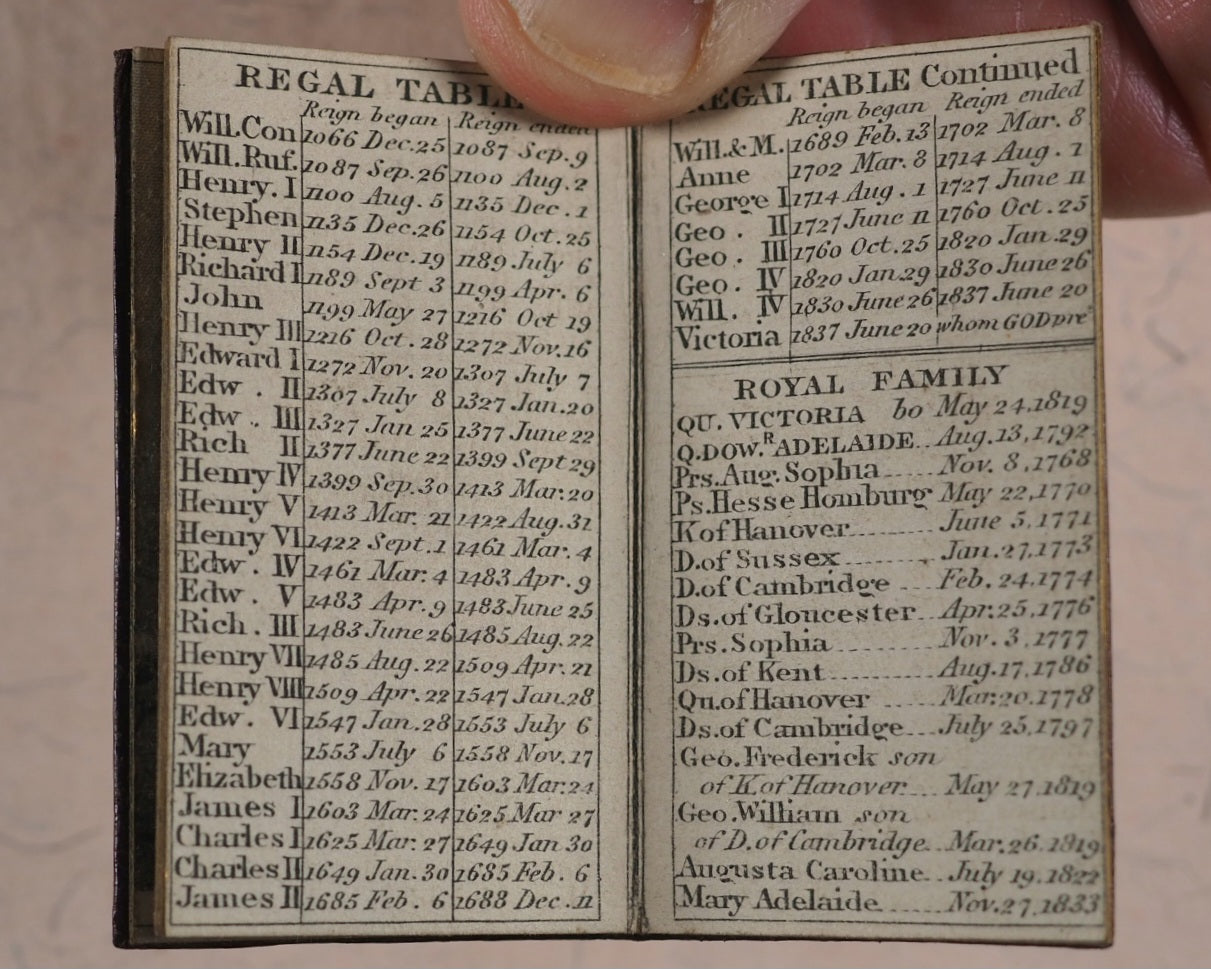 REGAL TABLE
Reign began Reign ended
Will.Con 1066 Dec.25 1087 Sep.9
Will.Ruf. 1087 Sep.26 1100 Aug.2
Henry. I 1100 Aug. 5 1135 Dec.1
Stephen 1135 Dec.26 1154 Oct.25
Henry II 1154 Dec.19 1189 July 6
Richard I 1189 Sept 3 1199 Apr. 6
John 1199 May 27 1216 Oct 19
Henry III 1216 Oct.28 1272 Nov.16
Edward I 1272 Nov.20 1307 July 7
Edw . II 1307 July 8 1327 Jan.20
Edw . III 1327 Jan 25 1377 June 22
Rich II 1377 June 22 1399 Sept 29
Henry IV 1399 Sep.30 1413 Mar.20
Henry V 1413 Mar. 21 1422 Aug.31
Henry VI 1422 Sept.1 1461 Mar.4
Edw. IV 1461 Mar.4 1483 Apr.9
Edw. V 1483 Apr.9 1483 June 25
Rich. III 1483 June 26 1485 Aug.22
Henry VII 1485 Aug.22 1509 Apr.21
Henry VIII 1509 Apr.22 1547 Jan.28
Edw. VI 1547 Jan.28 1553 July 6
Mary 1553 July 6 1558 Nov.17
Elizabeth 1558 Nov.17 1603 Mar.24
James I 1603 Mar.24 1625 Mar 27
Charles I 1625 Mar.27 1649 Jan 30
Charles II 1649 Jan.30 1685 Feb. 6
James II 1685 Feb. 6 1688 Dec.11
REGAL TABLE Continued
Reign began Reign ended
Will.& M. 1689 Feb.13 1702 Mar. 8
Anne 1702 Mar. 8 1714 Aug. 1
George I 1714 Aug. 1 1727 June 11
Geo . II 1727 June 11 1760 Oct.25
Geo . III 1760 Oct.25 1820 Jan.29
Geo. IV 1820 Jan.29 1830 June 26
Will. IV 1830 June 26 1837 June 20
Victoria 1837 June 20 whom GOD pre
ROYAL FAMILY
QU. VICTORIA bo May 24.1819
Q.DOW.R ADELAIDE.. Aug.13,1792
Prs.Aug.Sophia..... Nov. 8,1768
Ps.Hesse Homburg May 22,1770
K of Hanover........ June 5,1771
D.of Sussex......... Jan.27,1773
D.of Cambridge .... Feb. 24,1774
Ds.of Gloucester... Apr.25,1776
Prs.Sophia.......... Nov. 3,1777
Ds.of Kent.......... Aug.17,1786
Qu.of Hanover ..... Mar.20,1778
Ds.of Cambridge.... July 25,1797
Geo.Frederick son
of K.of Hanover.... May 27,1819
Geo.William son
of D.of Cambridge.. Mar.26.1819
Augusta Caroline.. July 19,1822
Mary Adelaide...... Nov.27,1833